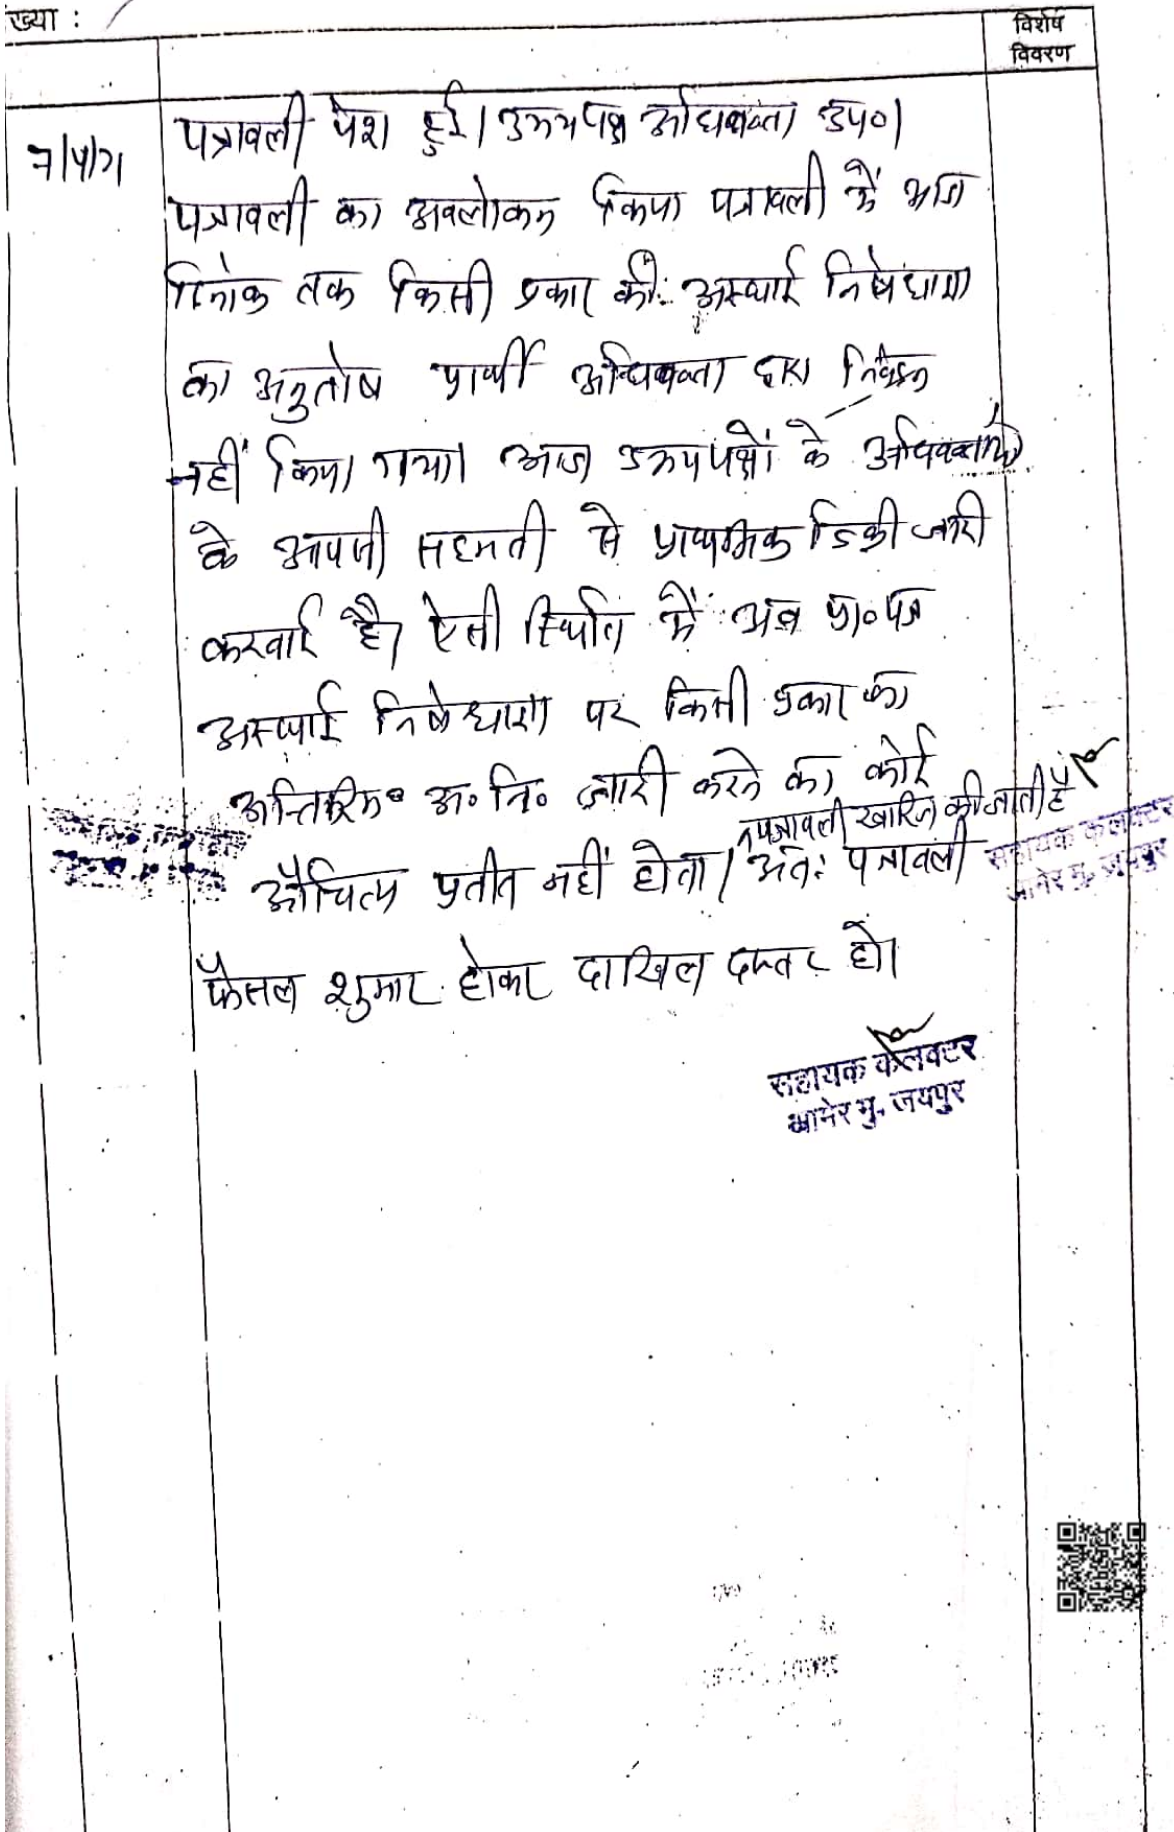 ख्या :
विशेष
विवरण
पत्रावली पेश हुई। उभयपक्ष अधिवक्ता उप०।
पत्रावली का अवलोकन किया पत्रावली में आज
दिनांक तक किसी प्रकार की अस्थाई निषेधाज्ञा
का अनुतोष प्रार्थी अधिवक्ता द्वारा निवेदन
नहीं किया गया। आज उभयपक्षों के अधिवक्ताओं
के आपसी सहमती से प्राथमिक डिक्री जारी
करवाई है। ऐसी स्थिति में अब प्रा०पत्र
अस्थाई निषेधाज्ञा पर किसी प्रकार का
अन्तिरिम अ०नि० जारी करने का कोई
पत्रावली खारिज की जाती है
औचित्य प्रतीत नहीं होता। अतः पत्रावली
सहायक कलक्टर
आमेर मु. जयपुर
फैसल शुमार होकर दाखिल दफ्तर हो।
सहायक कलक्टर
आमेर मु. जयपुर